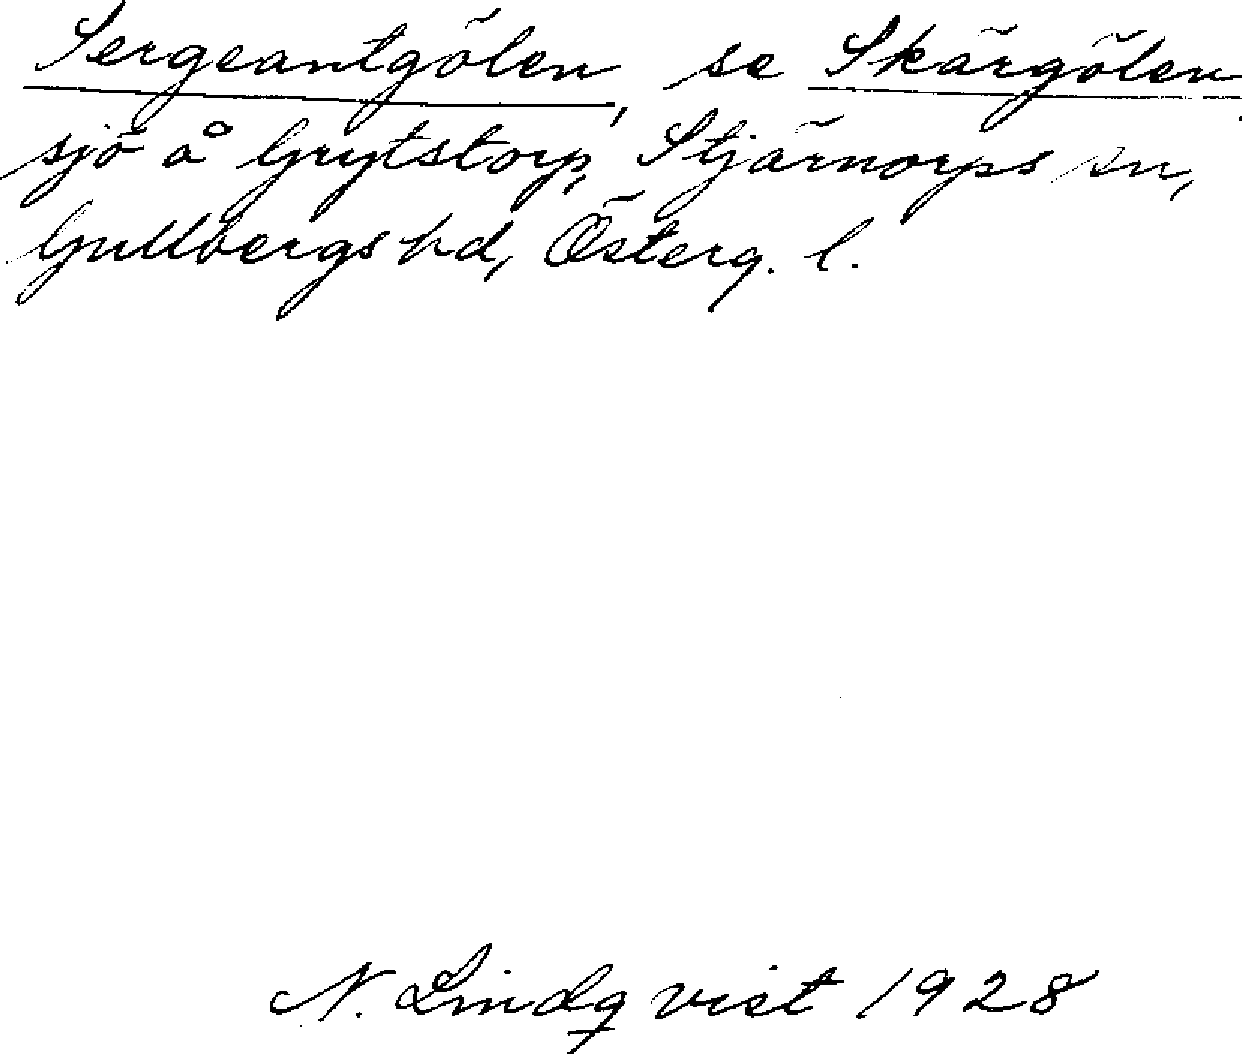 Sergeantgölen, se Skärgölen,
sjö å Grytstorp, Stjärnorps sn,
Gullbergs hd, Österg. l.
N. Lindqvist 1928